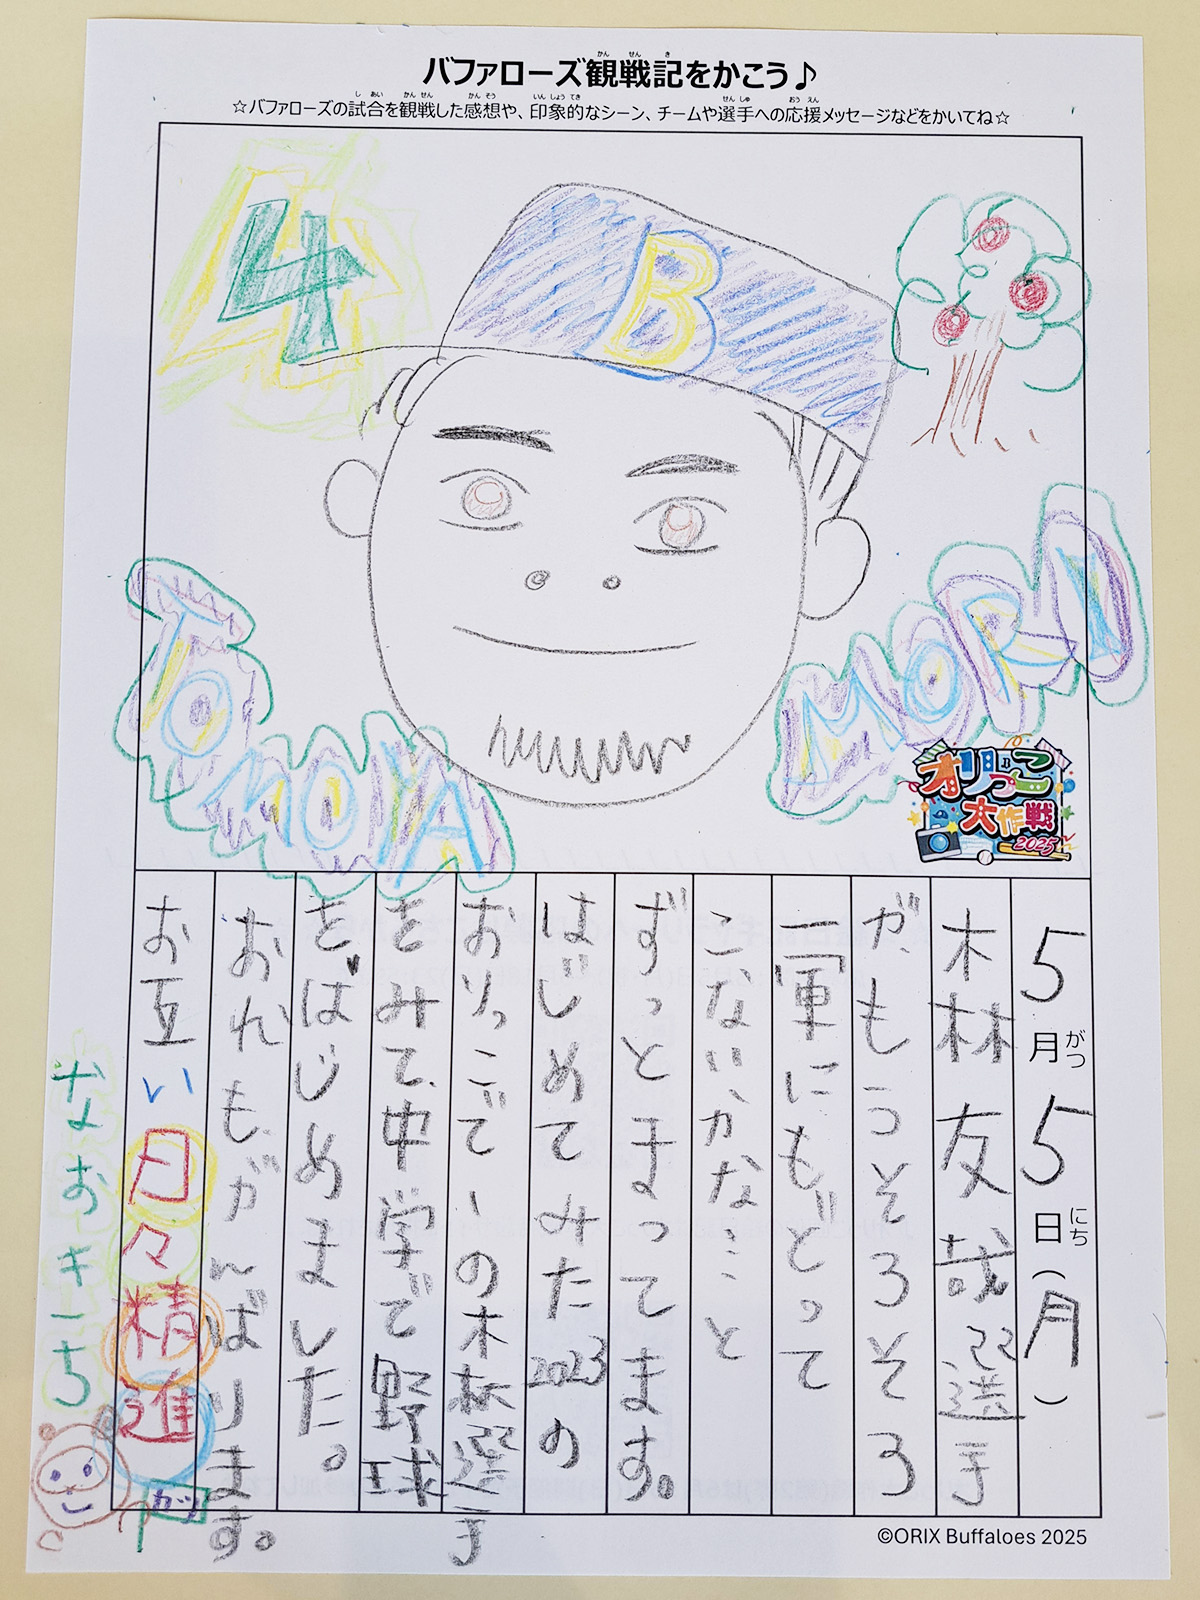 バファローズ観戦記をかこう♪
☆バファローズの試合を観戦した感想や、印象的なシーン、チームや選手への応援メッセージなどをかいてね☆
4
B
TOMOYA
MORI
オリっこ
大作戦
2025
5月5日(月)
木林友哉選手
が、もうそろそろ
一軍にもどって
こないかな…と
ずっとまってます。
はじめてみた2023の
おりっこでーの木林選手
をみて、中学で野球
をはじめました。
おれもがんばります。
お互い日々精進
なおきち
ガッ
©ORIX Buffaloes 2025